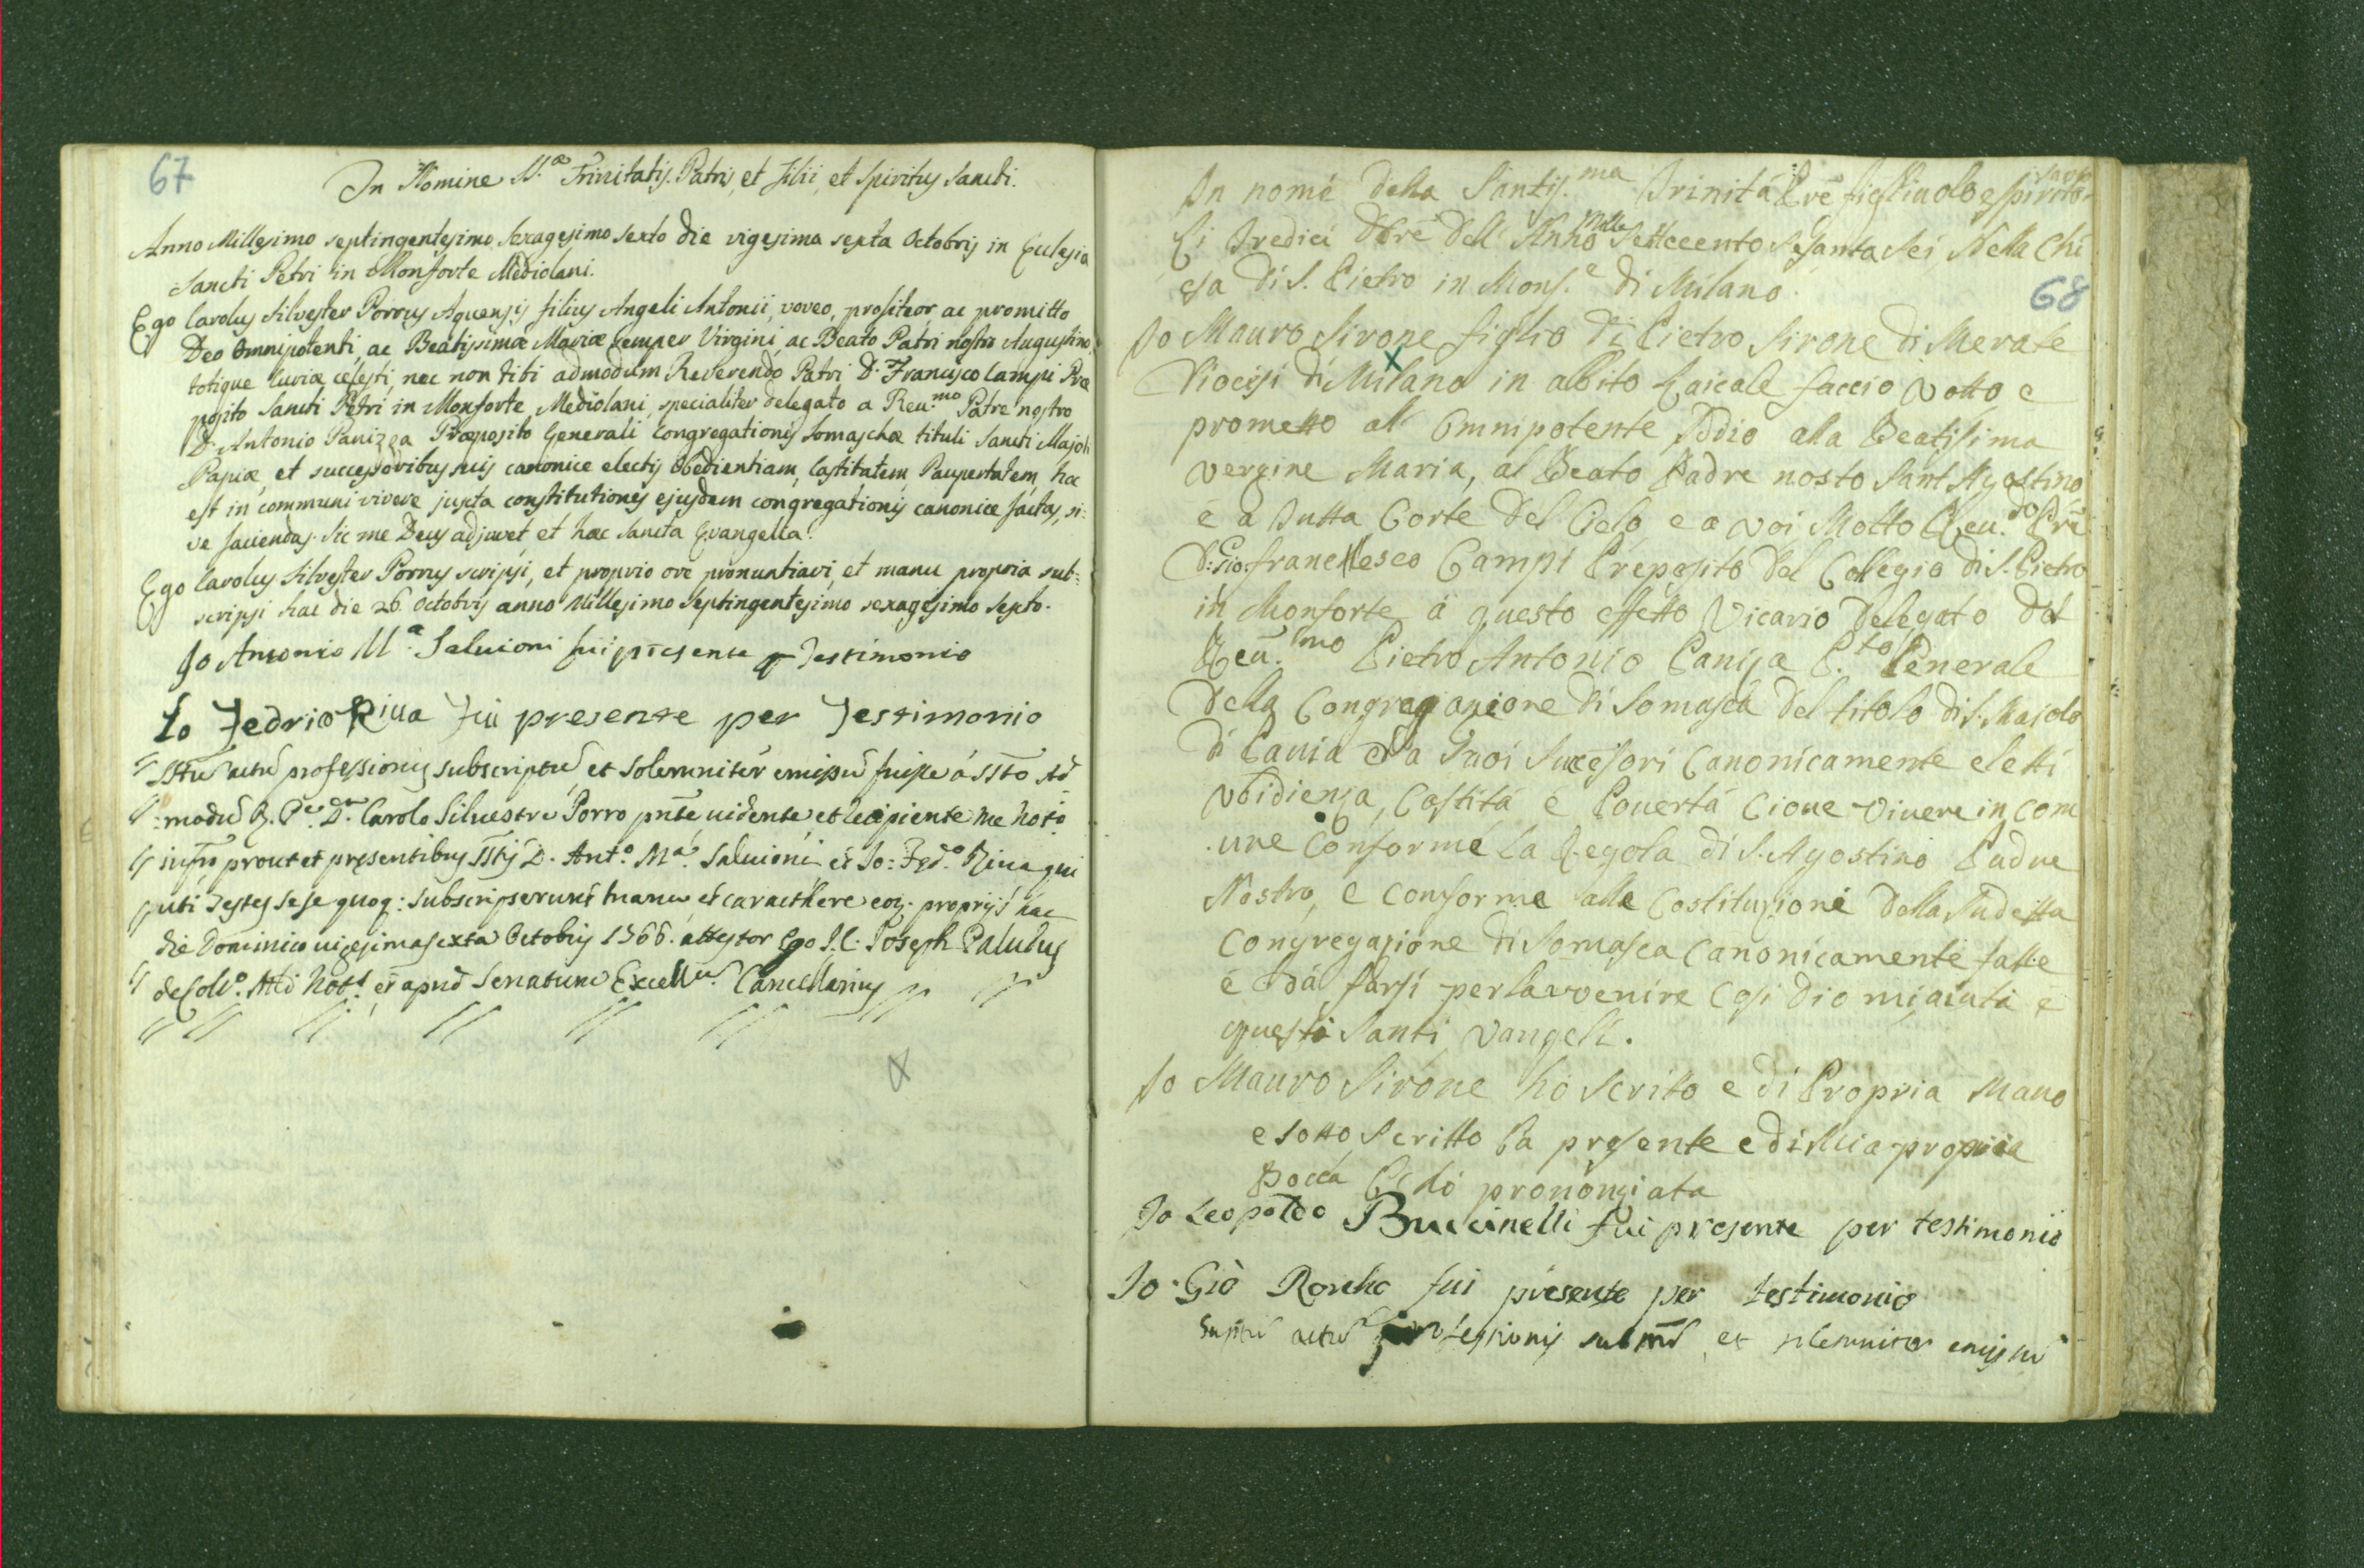 67
In Nomine SS.æ Trinitatis. Patris, et Filii, et Spiritus Sancti.
Anno Millesimo septingentesimo sexagesimo sexto die vigesima sexta Octobris in Ecclesia
Sancti Petri in Monforte Mediolani.
Ego Carolus Silvester Porrus Aquensis filius Angeli Antonii, voveo, profiteor ac promitto
Deo Omnipotenti, ac Beatissimæ Mariæ semper Virgini, ac Beato Patri nostro Augustino,
totique Curiæ cœlesti, nec non tibi admodum Reverendo Patri D. Francisco Campi Præ
posito Sancti Petri in Monforte Mediolani, specialiter delegato a Reu.mo Patre nostro
D. Antonio Panizza Præposito Generali Congregationis Somaschæ tituli Sancti Majoli
Papiæ, et successoribus suis canonice electis Obedientiam, Castitatem, Paupertatem, hoc
est in communi vivere juxta constitutiones ejusdem congregationis canonice factas, si=
ve faciendas. Sic me Deus adjuvet et hæc Sancta Evangelia.
Ego Carolus Silvester Porrus scripsi, et proprio ore pronuntiavi, et manu propria sub=
scripsi hac die 26. Octobris anno Millesimo Septingentesimo sexagesimo sexto.
Io Antonio M.a Saluioni fui presente p Testimonio
Io Fedrico Riua Fui presente per Testimonio
SStu actu professionis subscriptu et solemniter emissu fuisse à SSto Ad
modu R. Pe. Dn. Carolo Siluestro Porro pnte, uidente et recipiente me Noto
infro prout et presentibus SStis D. Ant.o M.a Saluioni et Io: Fed.o Riua qui
uti Testes sese quoq: subscripserunt manu et caracthere eoz. proprijs hac
die Dominico uigesima sexta Octobris 1766. attestor Ego I. C. Ioseph Paludus
de Coll.o Mli Nott.s et apud Senatum Excell.m Cancellarius

68
In nome della Santis.ma Trinitá Pre figliuolo e Spirito Santo
Li Tredici Dbre Dell' Anno Mille Settecento Sesanta Sei Nella Chi
esa di S. Pietro in Monf.e di Milano.
Io Mauro Sirone figlio di Pietro Sirone di Merate
Diocisi di Milano in abbito Laicale faccio Votto e
prometto all' Omnipotente Iddio alla Beatisima
Vergine Maria, al Beato Padre nosto Sant Agostino
e a Tutta Corte del Cielo, e a voi Molto Reu.do Pre
D: Gio: francesco Campi Preposito del Collegio di S. Pietro
in Monforte á questo effetto Vicario Delegato dal
Reu.imo Pietro Antonio Paniza P.to Generale
Della Congregazione di Somasca del titolo di S. Majolo
di Pauia e a Suoi Sucesori Canonicamente eletti
Vbidienza, Castitá e Pouertá Cioue Viuere in Com
une Conforme la Regola di S. Agostino Padre
Nostro, e Conforme alle Costituzioni della Sudetta
Congregazione di Somasca Canonicamente fatte
e da farsi per lavvenire Cosi Dio mi aiuti e
questi Santi Vangeli.
Io Mauro Sirone hò scritto e di Propria Mano
e sotto scritto la presente e di Mia propria
Bocca pronongiata
Io Leopoldo Buccinelli fui presente per testimonio
Io Gió Roncho fui presente per testimonio
actu professionis et solemniter emissu